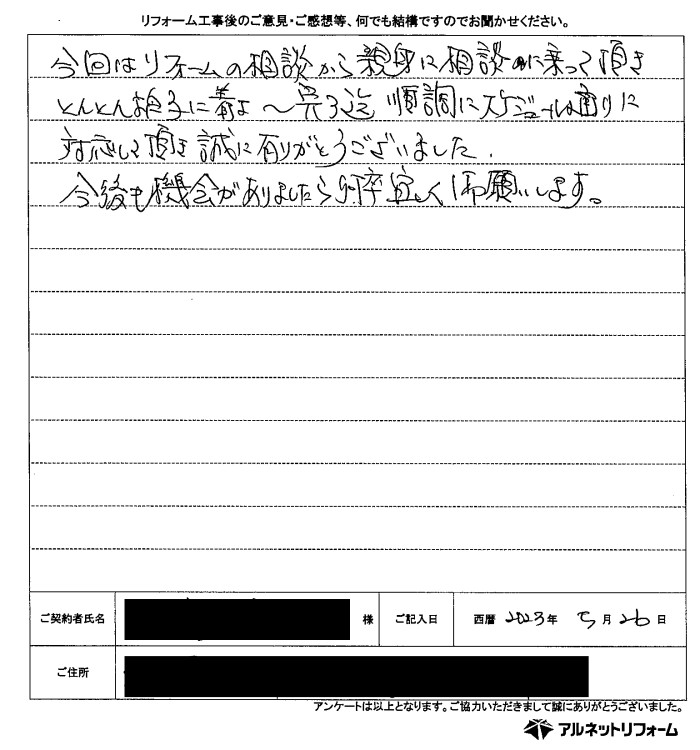 リフォーム工事後のご意見・ご感想等、何でも結構ですのでお聞かせください。
今回はリフォームの相談から親身に相談に乗って頂き
とんとん拍子に着工〜完了迄 順調にスケジュール通りに
対応して頂き誠に有りがとうございました.
今後も機会がありましたら何卒宜しく御願いします。
ご契約者氏名 様 ご記入日 西暦 2023年 5月26日
ご住所
アンケートは以上となります。ご協力いただきまして誠にありがとうございました。
アルネットリフォーム